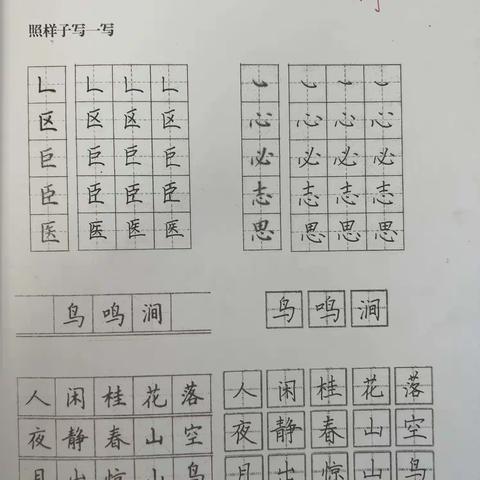 照样子写一写
乚 乚 乚 乚
区 区 区 区
巨 巨 巨 巨
臣 臣 臣 臣
医 医 医 医
㇃ ㇃ ㇃ ㇃
心 心 心 心
必 必 必 必
志 志 志 志
思 思 思 思
鸟 鸣 涧
鸟 鸣 涧
人 闲 桂 花 落
夜 静 春 山 空
月 出 惊 山 鸟
人 闲 桂 花 落
夜 静 春 山 空
月 出 惊 山 鸟